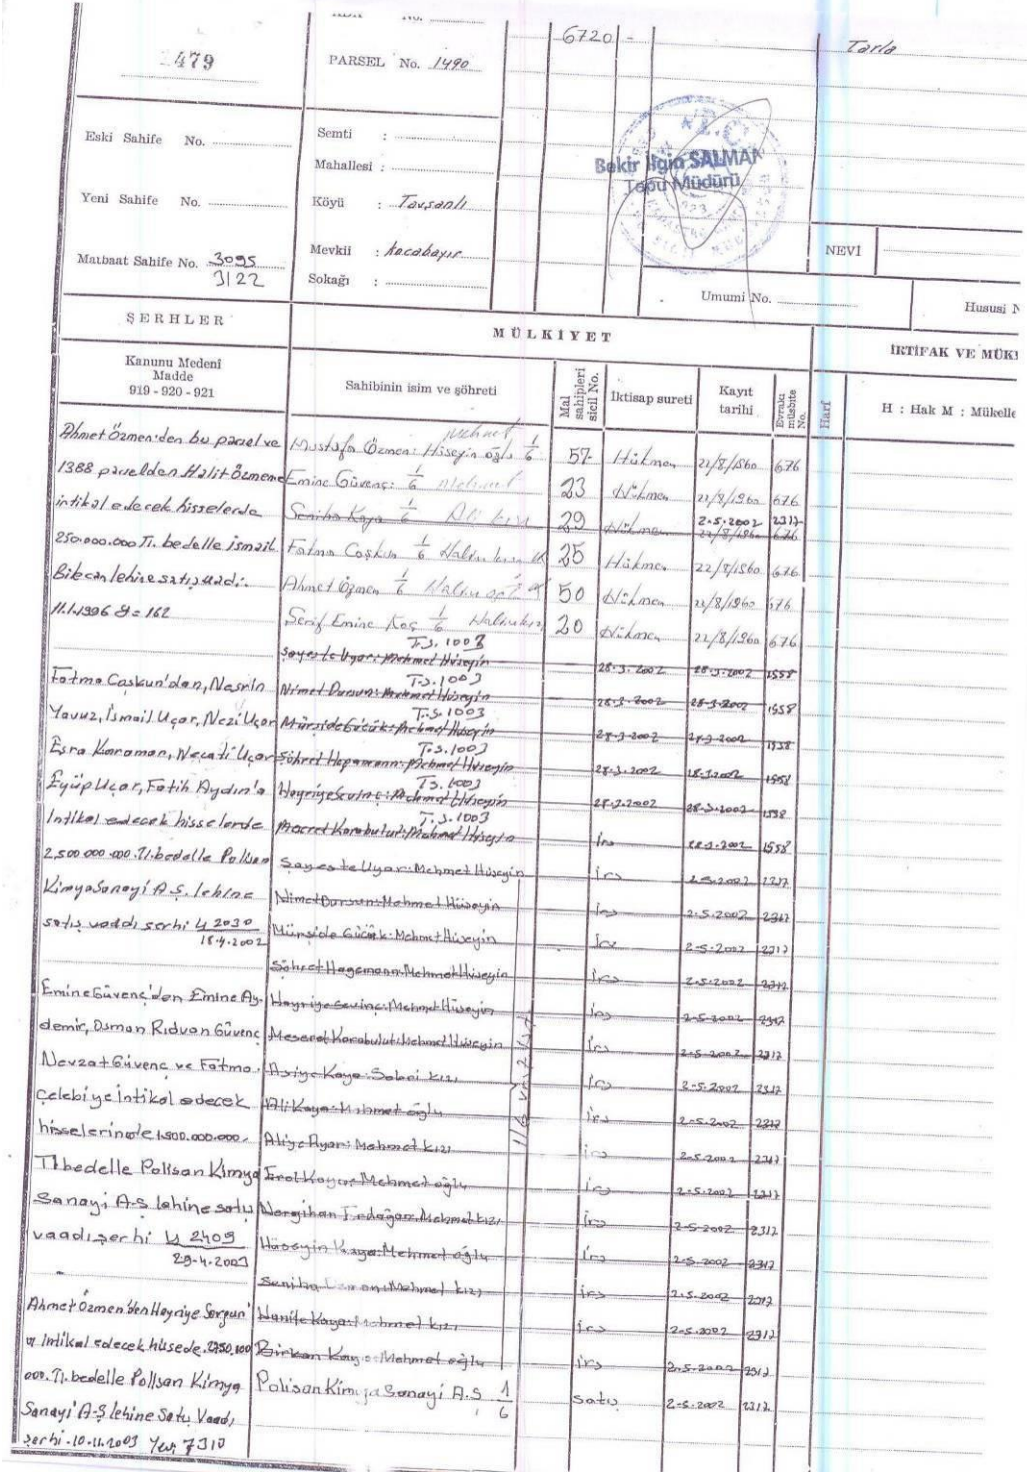 479
PARSEL No. 1490
6720 -
Tarla
Eski Sahife No.
Yeni Sahife No.
Matbaat Sahife No. 3095
3122
Semti :
Mahallesi :
Köyü : Tavşanlı
Mevkii : Kocabayır
Sokağı :
T.C.
Bekir Ilgın SALMAN
Tapu Müdürü
NEVİ
Umumi No.
Hususi N
ŞERHLER
MÜLKİYET
İRTİFAK VE MÜK
Kanunu Medenî
Madde
919 - 920 - 921
Sahibinin isim ve şöhreti
Mal sahipleri sicil No.
İktisap sureti
Kayıt tarihi
Evrakı müsbite No.
Harf
H : Hak M : Mükelle
Ahmet Özmen'den bu parsel ve
1388 parselden Halit Özmene
intikal edecek hisselerde
250.000.000 Tl. bedelle İsmail
Bilecan lehine satış vadi.
11.1.1996 Y= 162
Fatma Caskun'dan, Nesrin
Yavuz, İsmail Uçar, Nezi Uçar
Esra Karaman, Necati Uçar
Eyüp Uçar, Fatih Aydın'a
İntikal edecek hisselerde
2,500 000 000 Tl. bedelle Polisan
Kimya Sanayi A.Ş. lehine
satış vaddi serhi Y 2030
18.4.2002
Emine Güvenç'den Emine Ay-
demir, Osman Rıdvan Güvenç
Nevzat Güvenç ve Fatma
Çelebiye intikal edecek
hisselerinde 1.500.000.000.-
Tl bedelle Polisan Kimya
Sanayi A-Ş lehine satış
vaadı şerhi Y 2409
29-4-2003
Ahmet Özmen'den Hayriye Sorgun'
a intikal edecek hissede. 2750.000
000. Tl. bedelle Polisan Kimya
Sanayi A-Ş lehine Satış Vaadı
Şerhi -10-11-2003 Yev: 7310
Mehmet
Mustafa Özmen: Hüseyin oğlu 1/6 57 Hükmen 22/8/1960 676
Emine Güvenç: 1/6 Mehmet 23 Hükmen 22/8/1960 676
Seniha Kaya 1/6 Ali kızı 29 Hükmen 22/8/1960 676
2-5-2002 2317
Fatma Coşkun 1/6 Halim kızı 25 Hükmen 22/8/1960 676
Ahmet Özmen 1/6 Halim oğl 50 Hükmen 22/8/1960 676
Şerif Emine Koç 1/6 Halim kızı 20 Hükmen 22/8/1960 676
T.S. 1003
Şayeste Uyar: Mehmet Hüseyin 28-3-2002 28-3-2002 1558
T.S. 1003
Nimet Dursun: Mehmet Hüseyin 28-3-2002 28-3-2002 1558
T.S. 1003
Mürşide Gücük: Mehmet Hüseyin 28-3-2002 28-3-2002 1558
T.S. 1003
Şöhret Hagemann: Mehmet Hüseyin 28-3-2002 28-3-2002 1558
T.S. 1003
Hayriye Sevinç: Mehmet Hüseyin 28-3-2002 28-3-2002 1558
T.S. 1003
Meserret Karabulut: Mehmet Hüseyin İrs 28-3-2002 1558
Şayeste Uyar: Mehmet Hüseyin İrs 2-5-2002 2317
Nimet Dursun: Mehmet Hüseyin İrs 2-5-2002 2317
Mürşide Gücük: Mehmet Hüseyin İrs 2-5-2002 2317
Şöhret Hagemann: Mehmet Hüseyin İrs 2-5-2002 2317
Hayriye Sevinç: Mehmet Hüseyin İrs 2-5-2002 2317
Meseret Karabulut: Mehmet Hüseyin İrs 2-5-2002 2317
Asiye Kaya: Sabri kızı İrs 2-5-2002 2317
Ali Kaya: Mehmet oğlu İrs 2-5-2002 2317
Aliye Ayar: Mehmet kızı İrs 2-5-2002 2317
Erol Kaya: Mehmet oğlu İrs 2-5-2002 2317
Nergihan Erdağan: Mehmet kızı İrs 2-5-2002 2317
Hüseyin Kaya: Mehmet oğlu İrs 2-5-2002 2317
Seniha: Mehmet kızı İrs 2-5-2002 2317
Hanife Kaya: Mehmet kızı İrs 2-5-2002 2317
Birkan Kaya: Mehmet oğlu İrs 2-5-2002 2317
Polisan Kimya Sanayi A.Ş 1/6 Satış 2-5-2002 2317